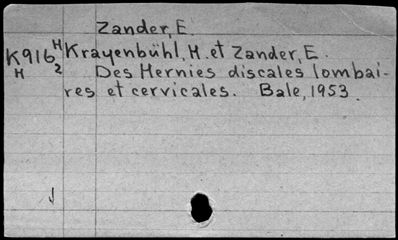 Zander, E.
K916 H Krayenbühl, H. et Zander, E.
H 2 Des Hernies discales lombai-
res et cervicales. Bale, 1953